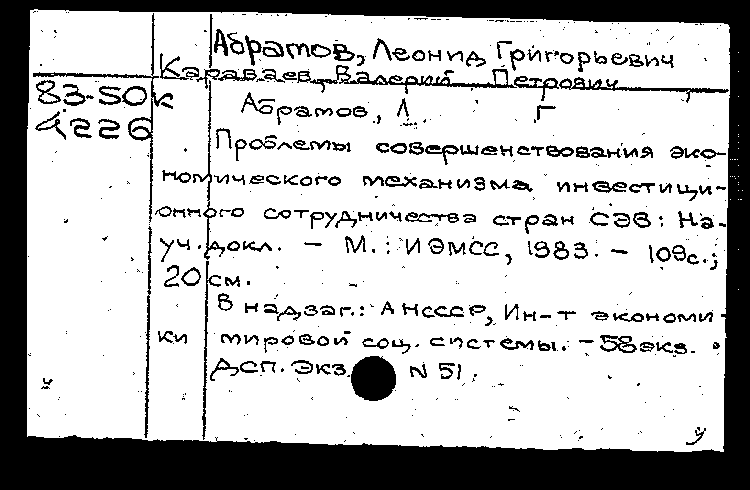 Абрамов, Леонид Григорьевич
Караваев, Валерий Петрович
83-50к
4226
Абрамов, Л Г
Проблемы совершенствования эко-
номического механизма инвестици-
онного сотрудничества стран СЭВ: На-
уч. докл. - М.: ИЭМСС, 1983. - 109с.;
20 см.
В надзаг.: АНСССР, Ин-т экономи-
ки мировой соц. системы. - 58экз.
ДСП. Экз. N 51.